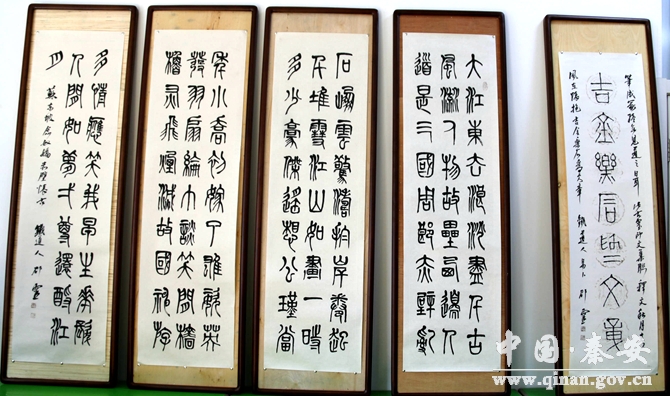 吉金樂石 文
大江東去浪淘盡千古
風流人物故壘西邊人
道是三國周郎赤壁亂
石崩雲驚濤拍岸卷起
千堆雪江山如畫一時
多少豪傑遙想公瑾當
年小喬初嫁了雄姿英
發羽扇綸巾談笑間檣
櫓灰飛煙滅故國神游
多情應笑我早生華髮
人間如夢一尊還酹江
月
蘇東坡念奴嬌赤壁懷古
鐵道人
中国·秦安
www.qinan.gov.cn